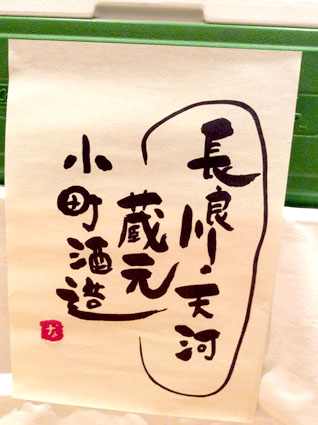 長良川・天河
蔵元
小町酒造
な